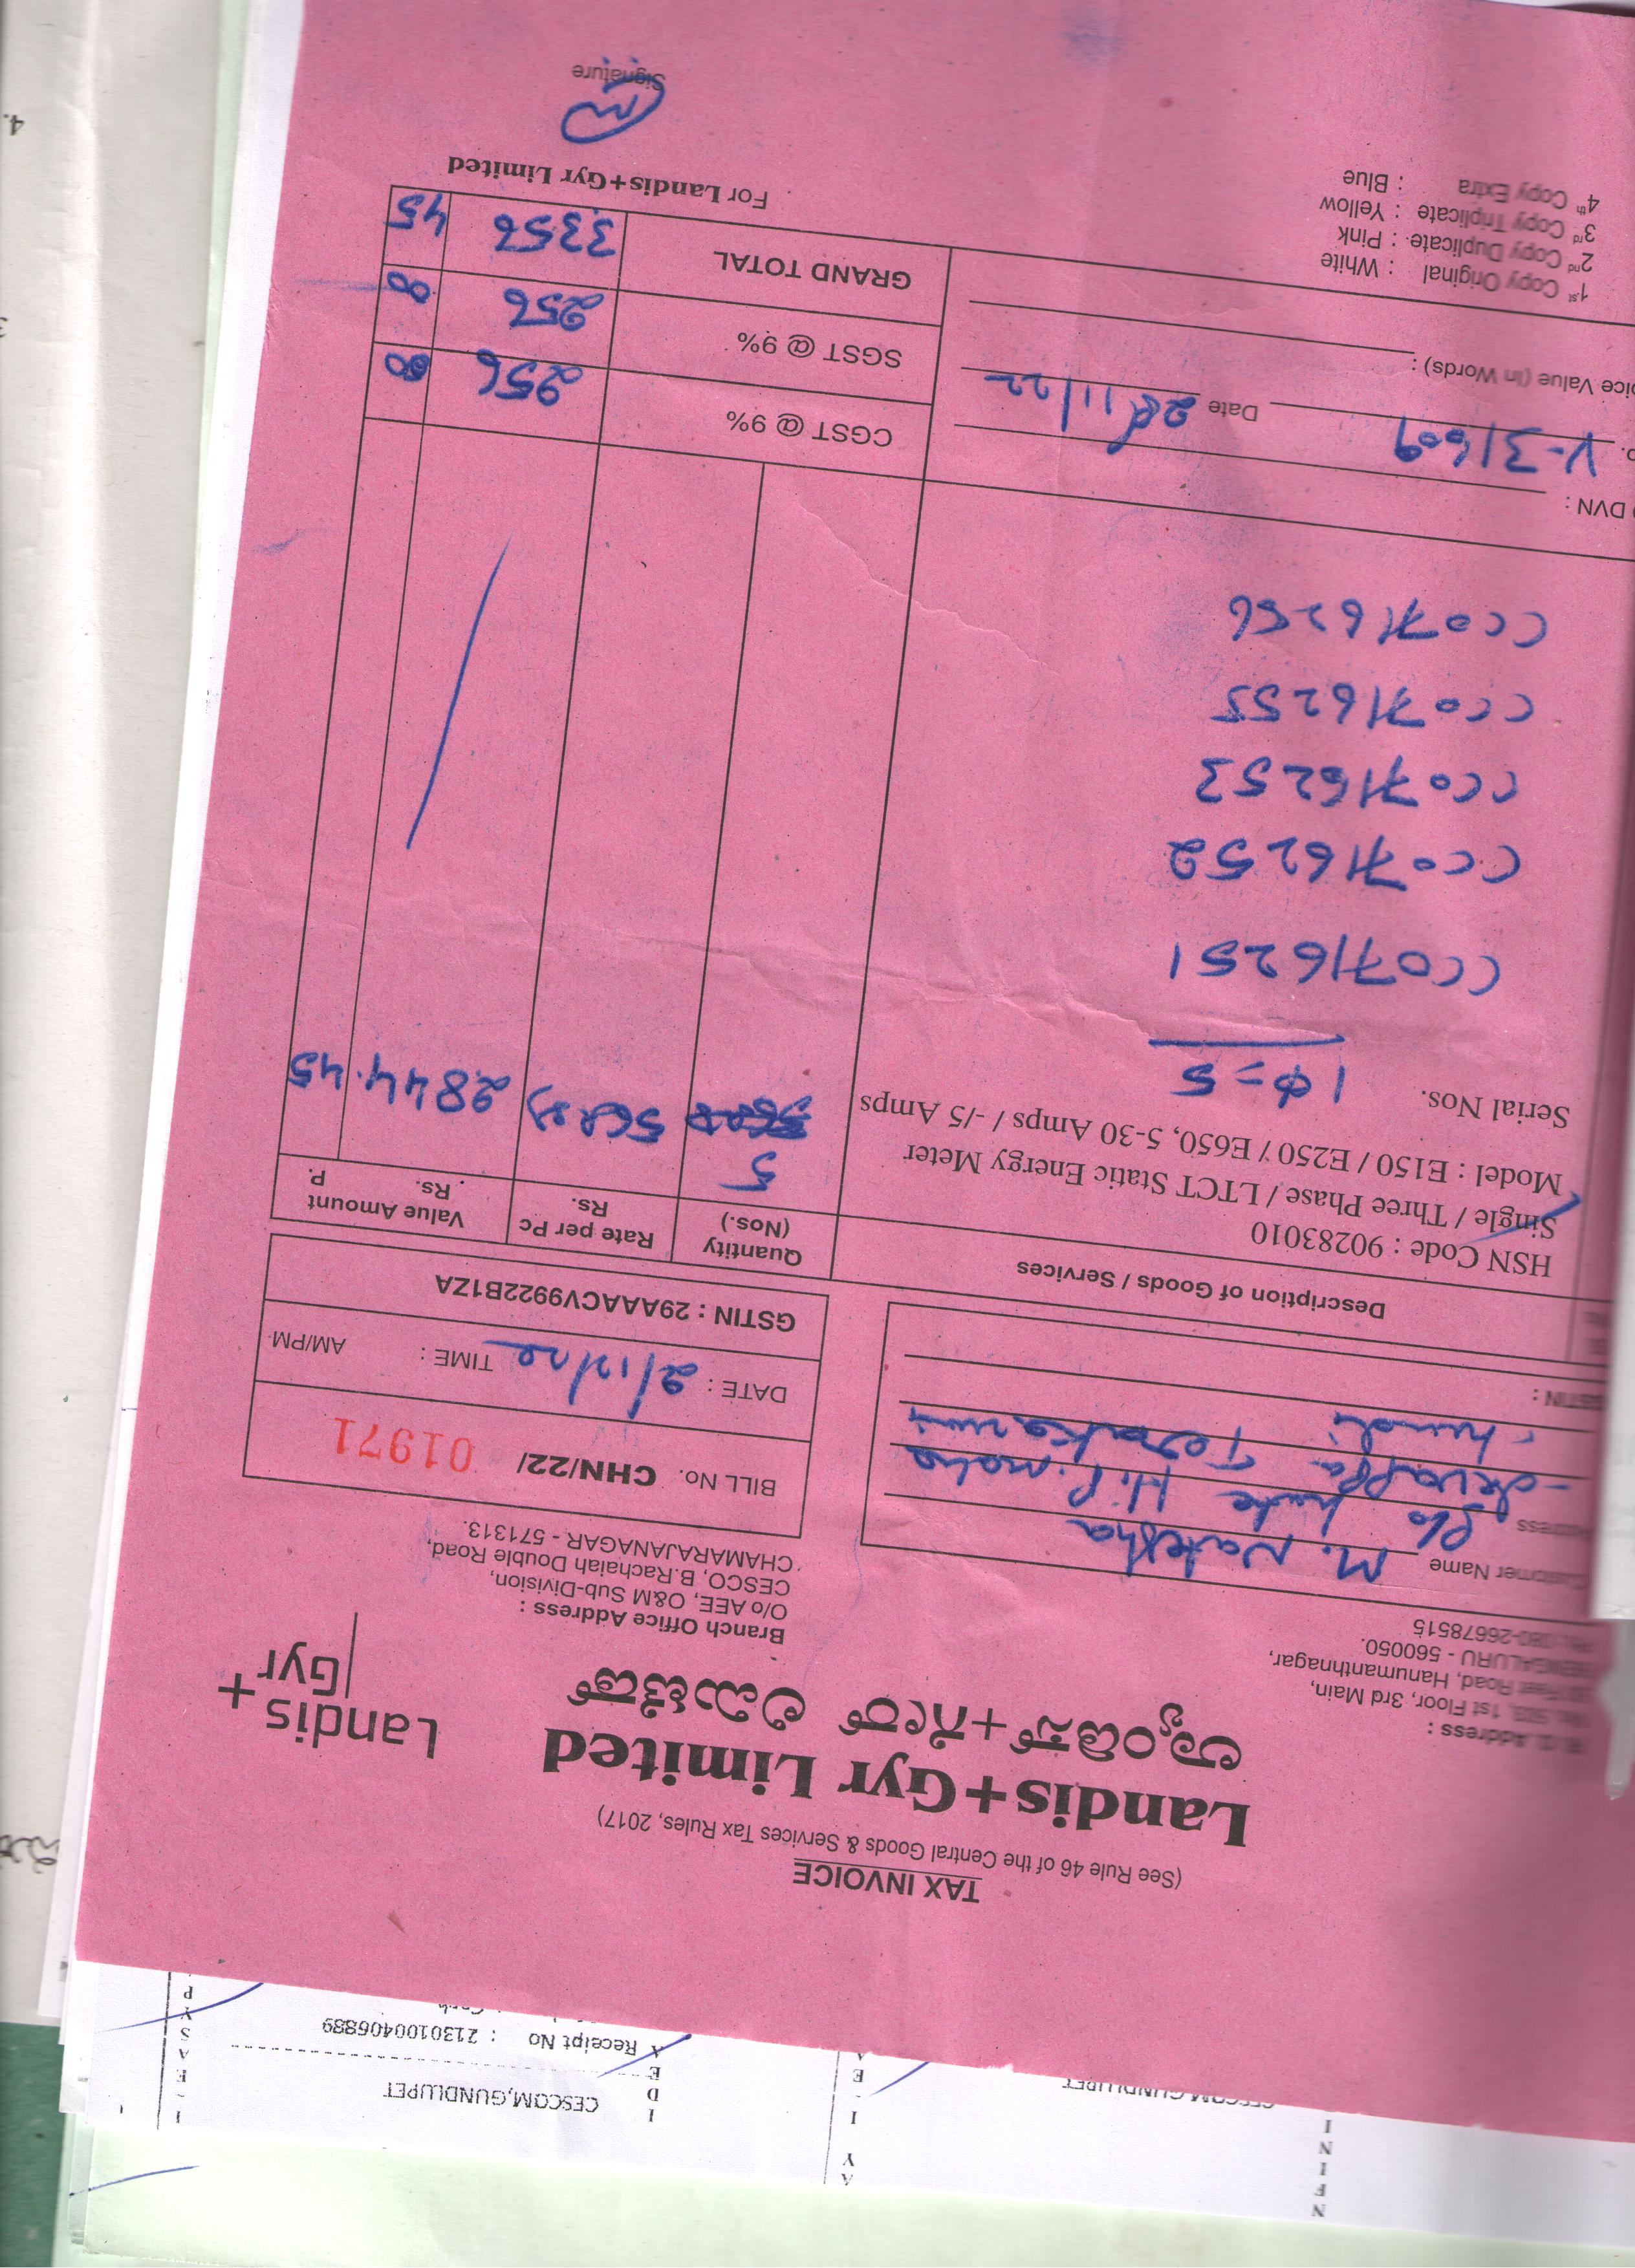 TAX INVOICE
(See Rule 46 of the Central Goods & Services Tax Rules, 2017)
Landis+Gyr Limited
ಲ್ಯಾಂಡಿಸ್+ಗೀರ್ ಲಿಮಿಟೆಡ್
Landis+
Gyr
Address :
1st Floor, 3rd Main,
Road, Hanumanthnagar,
BENGALURU - 560050.
080-26678515
Branch Office Address :
O/o AEE, O&M Sub-Division,
CESCO, B.Rachaiah Double Road,
CHAMARAJANAGAR - 571313.
Customer Name M. Natesha
Address
GSTIN :
BILL No. CHN/22/ 01971
DATE : 2/12/22 TIME : AM/PM
GSTIN : 29AAACV9922B1ZA
Description of Goods / Services
Quantity (Nos.)
Rate per Pc Rs.
Value Amount
Rs. P.
HSN Code : 90283010
Single / Three Phase / LTCT Static Energy Meter
Model : E150 / E250 / E650, 5-30 Amps / -/5 Amps
Serial Nos. 1Φ=5
5 2844.45 45
CC0716251
CC0716252
CC0716253
CC0716255
CC0716256
DVN :
V-31609 Date 28/11/22
Value (In Words) :
CGST @ 9% 256 00
SGST @ 9% 256 00
GRAND TOTAL 3356 45
1st Copy Original : White
2nd Copy Duplicate : Pink
3rd Copy Triplicate : Yellow
4th Copy Extra : Blue
For Landis+Gyr Limited
Signature
CESCOM,GUNDLUPET
Receipt No : 2130100406889